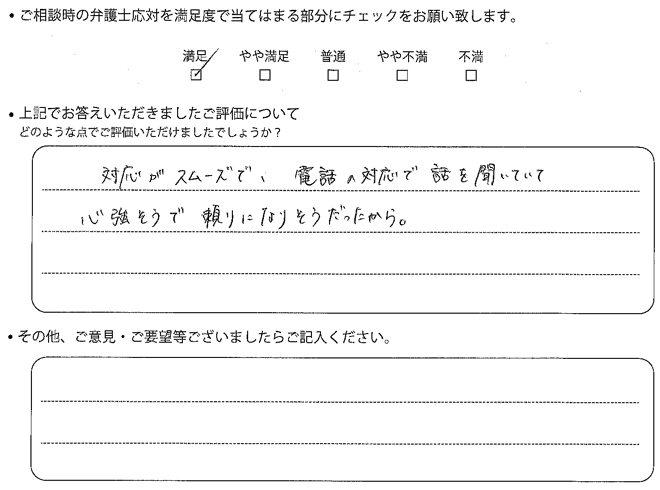 • ご相談時の弁護士応対を満足度で当てはまる部分にチェックをお願い致します。
満足 やや満足 普通 やや不満 不満
☑ □ □ □ □
• 上記でお答えいただきましたご評価について
どのような点でご評価いただけましたでしょうか？
対応がスムーズで、電話の対応で話を聞いていて
心強そうで頼りになりそうだったから。
• その他、ご意見・ご要望等ございましたらご記入ください。